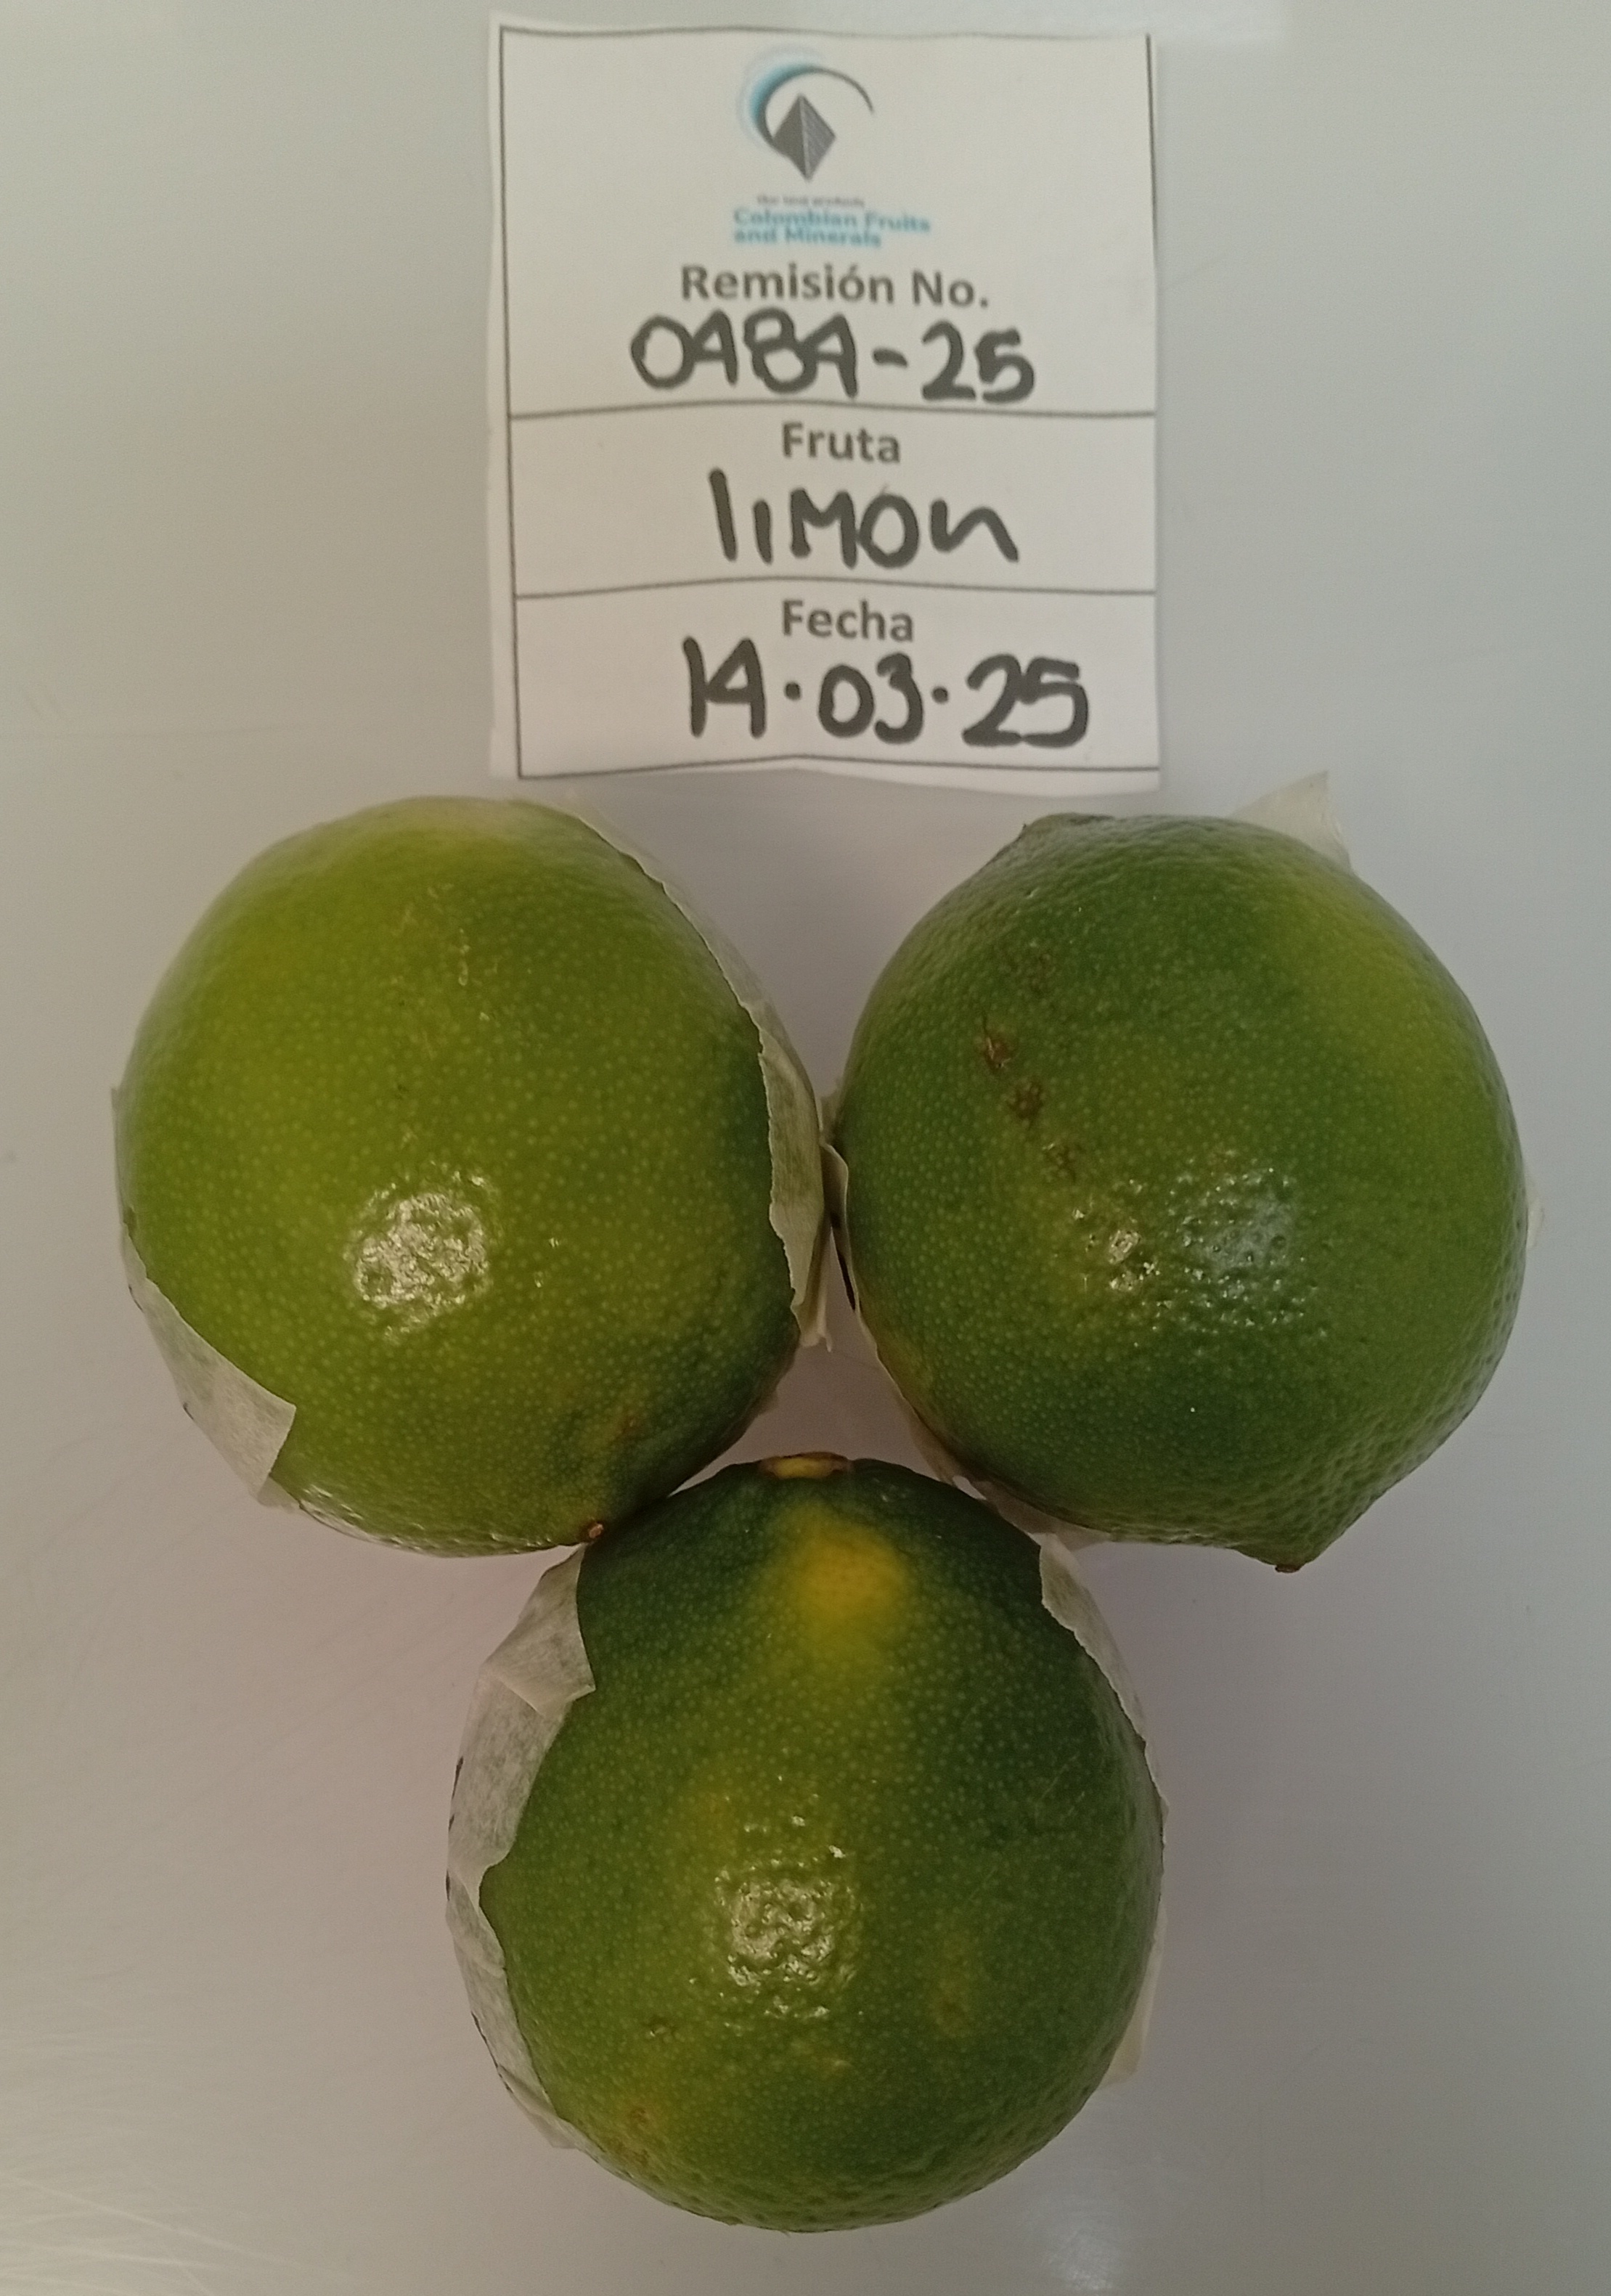 the best products
Colombian Fruits
and Minerals
Remisión No.
0484-25
Fruta
limon
Fecha
14·03·25